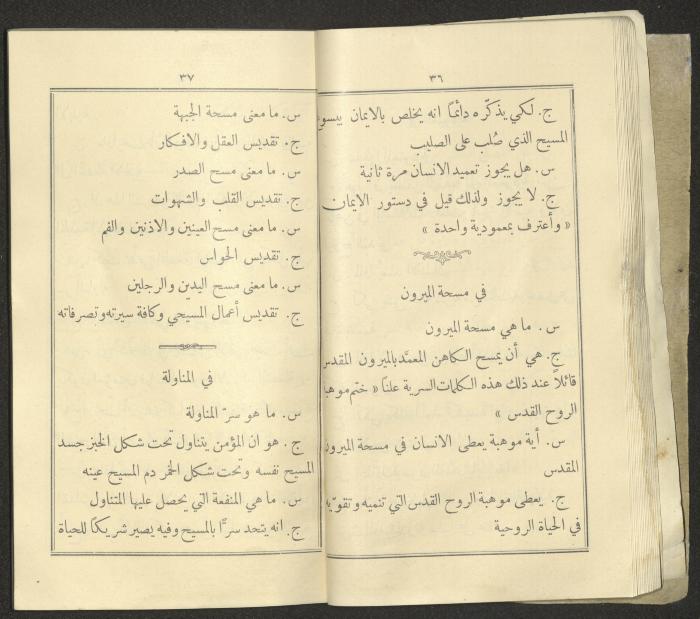 ٣٦
ج. لكي يذكّره دائمًا انه يخلص بالايمان بيسوع
المسيح الذي صُلب على الصليب
س. هل يجوز تعميد الانسان مرة ثانية
ج. لا يجوز ولذلك قيل في دستور الايمان
« وأعترف بمعمودية واحدة »
في مسحة الميرون
س. ما هي مسحة الميرون
ج. هي أن يمسح الكاهن المعمَّد بالميرون المقدس
قائلاً عند ذلك هذه الكلمات السرية علنًا « ختم موهبة
الروح القدس »
س. أية موهبة يعطى الانسان في مسحة الميرون
المقدس
ج. يعطى موهبة الروح القدس التي تنميه وتقوّيه
في الحياة الروحية
٣٧
س. ما معنى مسحة الجبهة
ج. تقديس العقل والافكار
س. ما معنى مسح الصدر
ج. تقديس القلب والشهوات
س. ما معنى مسح العينين والاذنين والفم
ج. تقديس الحواس
س. ما معنى مسح اليدين والرجلين
ج. تقديس أعمال المسيحي وكافة سيرته وتصرفاته
في المناولة
س. ما هو سرّ المناولة
ج. هو ان المؤمن يتناول تحت شكل الخبز جسد
المسيح نفسه وتحت شكل الخمر دم المسيح عينه
س. ما هي المنفعة التي يحصل عليها المتناول
ج. انه يتحد سرًّا بالمسيح وفيه يصير شريكًا للحياة